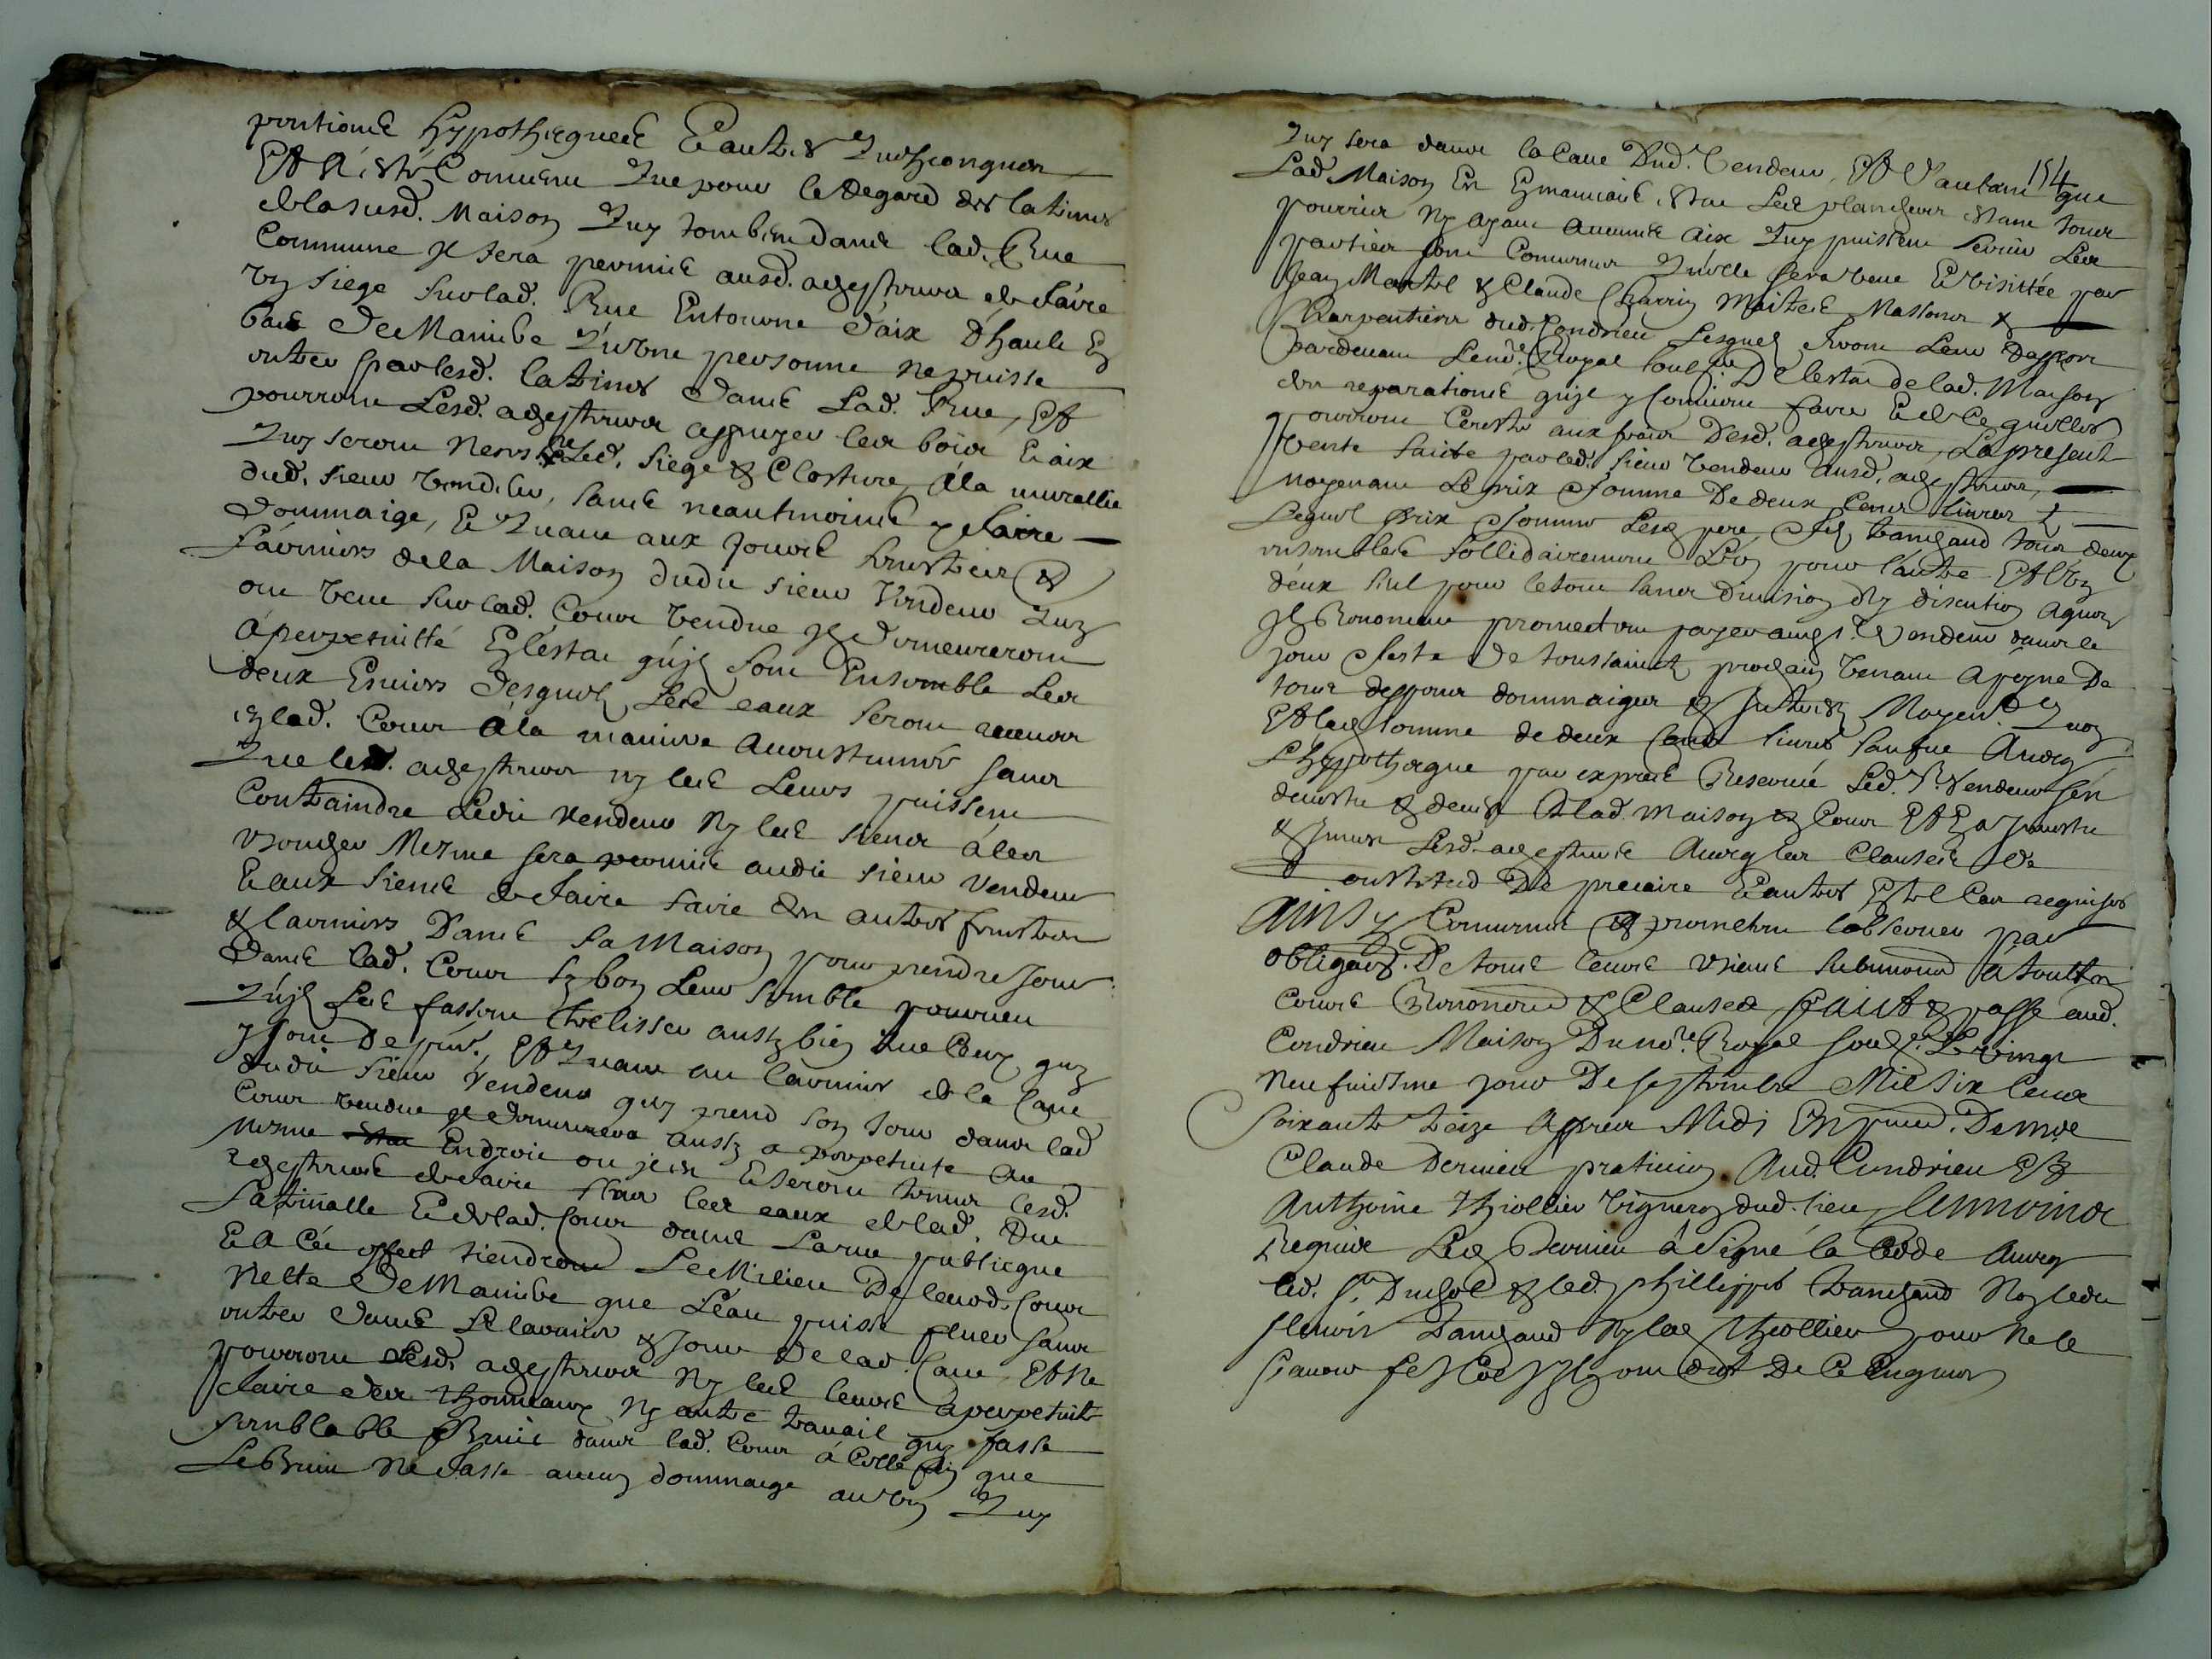 pentions hypothecques et autres quelconques
Et a esté convenu que pour le regard des latrines
de la susd. maison quy tombent dans lad. rue
commune il sera permis ausd. acqestrurs de faire
un siege sur lad. rue entourné d'aix d'hault en
bas de maniere qu'une personne ne puisse
entrer par lesd. latrines dans lad. rue, et
pourront lesd. acqestrurs appuyer les bois et aix
quy seront ness.res aud. siege & closture, à la muraille
dud. sieur vendeur, sans neantmoins y faire
dommaige, et quant aux jours fenestres &
larmiers de la maison dudit sieur vendeur quy
ont veue sur lad. cour vendue ilz demeureront
à perpetuitté en l'estat qu'ilz sont ensemble les
deux esviers desquels les eaux seront receues
en lad. cour à la maniere accoustumée sans
que lesd. acqestrurs ny les leurs puissent
contraindre ledit vendeur ny les siens à les
bouscher mesme sera permis audit sieur vendeur
et aux siens de faire faire des autres fenestres
& larmiers dans sa maison pour prendre jour
dans lad. cour sy bon leur semble pourveu
qu'ilz les fassent trelisser aussy bien que ceux quy
y sont de pnt., et quant au larmier de la cave
dudit sieur vendeur quy prend son jour dans lad.
cour vendue il demeurera aussy a perpetuité au
mesme endroit ou il est et seront tenus lesd.
acqestrurs de faire fluer les eaux de lad. rue
latrinalle et de lad. cour dans la rue publicque
et a cet effect tiendront le milieu de leurd. cour
nette de maniere que l'eau puisse fluer sans
entrer dans le larmier & jour de lad. cave, et ne
pourront lesd. acqestrurs ny les leurs à perpetuité
faire des thonneaux ny autre travail quy fasse
semblable bruit dans lad. cour à celle fin que
le bruit ne fasse aucun dommage au vin quy
154
quy sera dans la cave dud. vendeur, et d'autant que
lad. maison en mauvais estat les planchers estant tous
pourris ny ayant aucunes aix quy puissent servir les
parties sont convenues qu'elle sera veue et visittée par
Jean Martel & Claude Charrin maitres massons &
charpentiers dud. Condrieu lesquels feront leur rapport
pardevant le nore. royal soub.né de l'estat de lad. maison
des reparations qu'il y convient faire et de ce quelles
pourront couster aux frais desd. acqestrurs, la presente
vente faicte par led. sieur vendeur ausd. acqestrurs,
moyenant le prix & somme de deux cens livres
lequel prix & somme lesd. pere & fils Danchaud tous deux
ensembles sollidairement l'un pour l'autre et l'un
d'eux seul pour le tout sans division ny discution a quoy
ilz renoncent promettent payer aud. s. vendeur dans le
jour & feste de toussainct prochain venant a peyne de
tous despens dommaiges & interestz moyent. quoy
et lad. somme de deux cens livres sauf que avec
l'hypothecque par expres reservée led. s. vendeur s'en
devestu & demis de lad. maison & cour et en a investu
& saisi lesd. acqestrurs avec les clauses de
constitud de precaire et autres en tel cas requises
Ainsy convenu & promettent l'observer par
obligaon. de tous leurs biens submission à touttes
cours renonon. & clauses, Faict & passé aud.
Condrieu maison du nore. royal soub.né le vingt
neufviesme jour de septembre mil six cens
soixante treize apres midi en pnce. de me
Claude Dernieu praticien aud. Condrieu et
Anthoine Thiollier vigneron dud. lieu tesmoins
requis led. Dernieu a signé la cede avec
led. s. Duchol & led. phillippes Danchaud non led.
fleury Danchaud ny led. Thiollier pour ne le
scavoir fe ilz ont dict de ce enquis